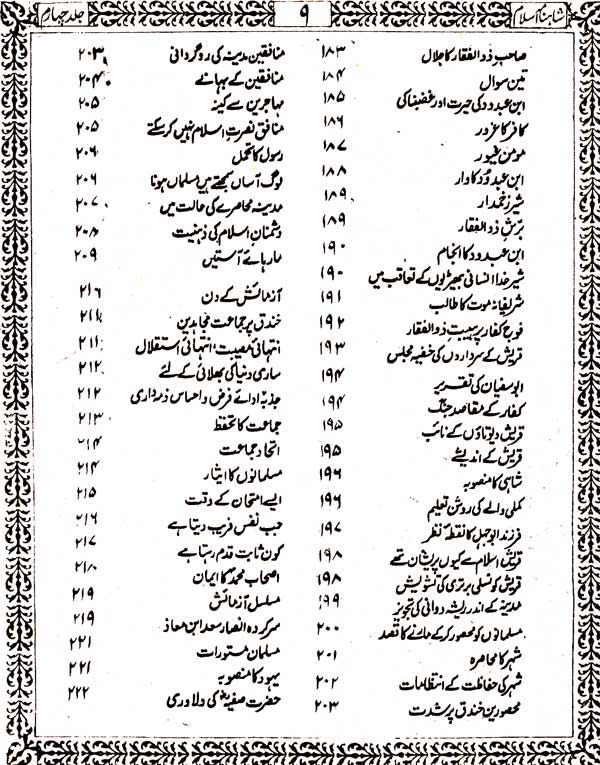 شاہنامہ اسلام
۹
جلد چہارم
صاحبِ ذوالفقار کا جلال ۱۸۳
تین سوال ۱۸۴
ابن عبدود کی حیرت اور غضبناکی ۱۸۵
کافر کا غرور ۱۸۶
مومن غیور ۱۸۷
ابن عبدوُد کا وار ۱۸۸
شیر زخمدار ۱۸۹
برشِ ذوالفقار ۱۸۹
ابن عبدود کا انجام ۱۹۰
شیر خدا انسانی بھیڑیوں کے تعاقب میں ۱۹۰
شریفانہ موت کا طالب ۱۹۱
فوج کفار پر ہیبت ذوالفقار ۱۹۲
قریش کے سرداروں کی خفیہ مجلس ۱۹۳
ابوسفیان کی تقریر ۱۹۴
کفار کے مقاصد جنگ ۱۹۴
قریش دیوتاؤں کے نائب ۱۹۵
قریش کے اندیشے ۱۹۵
شاہی کا منصوبہ ۱۹۶
کملی والے کی روشن تعلیم ۱۹۶
فرزند ابوجہل کا نقطۂ نظر ۱۹۷
قریش اسلام سے کیوں پریشان تھے ۱۹۸
قریش کو نسلی برتری کی تشویش ۱۹۸
مدینہ کے اندر ریشہ دوانی کی تجویز ۱۹۹
مسلمانوں کو محصور کر کے مارنے کا قصد ۲۰۰
شہر کا محاصرہ ۲۰۱
شہر کی حفاظت کے انتظامات ۲۰۲
محصورین خندق پر شدت ۲۰۳
منافقین مدینہ کی روگردانی ۲۰۳
منافقین کے بہانے ۲۰۴
مہاجرین سے کینہ ۲۰۵
منافق نصرتِ اسلام نہیں کر سکتے ۲۰۵
رسول کا تحمل ۲۰۶
لوگ آساں سمجھتے ہیں مسلماں ہونا ۲۰۶
مدینہ محاصرے کی حالت میں ۲۰۷
دشمنانِ اسلام کی ذہنیت ۲۰۸
مارہائے آستیں ۲۰۹
آزمائش کے دن ۲۱۶
خندق پر جماعت مجاہدین ۲۱۱
انتہائی مصیبت، انتہائی استقلال ۲۱۱
ساری دنیا کی بھلائی کے لئے ۲۱۲
جذبۂ ادائے فرض و احساس ذمہ داری ۲۱۲
جماعت کا تحفظ ۲۱۳
اتحاد جماعت ۲۱۴
مسلمانوں کا ایثار ۲۱۴
ایسے امتحان کے وقت ۲۱۵
جب نفس فریب دیتا ہے ۲۱۶
کون ثابت قدم رہتا ہے ۲۱۷
اصحاب محمدؐ کا ایمان ۲۱۸
مسلسل آزمائش ۲۱۹
سرکردہ انصار سعد ابن معاذ ۲۱۹
مسلمان مستورات ۲۲۱
یہود کا منصوبہ ۲۲۱
حضرت صفیہؓ کی دلاوری ۲۲۲